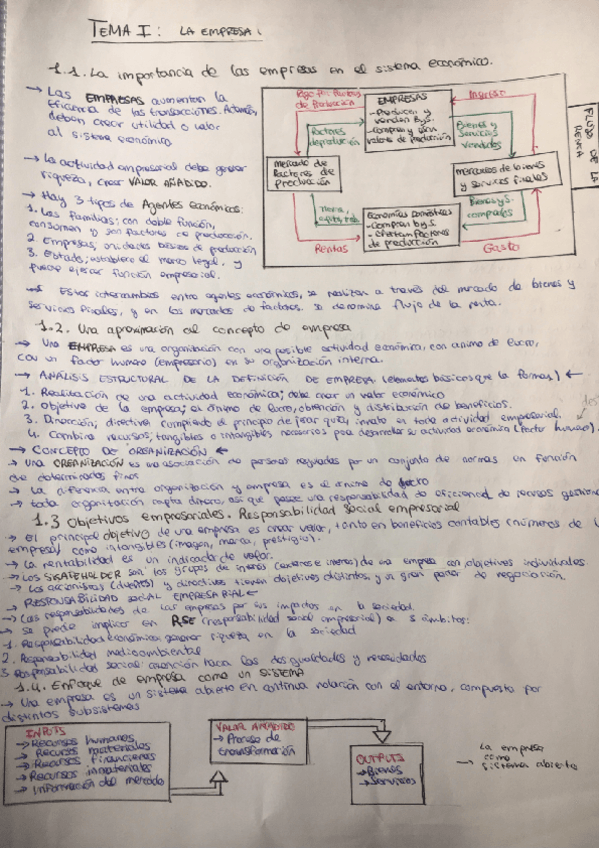 TEMA I: LA EMPRESA
1.1. La importancia de las empresas en el sistema económico.
→ Las EMPRESAS aumentan la
eficiencia de las transacciones. Además,
deben crear utilidad o valor
al sistema económico
→ La actividad empresarial debe generar
riqueza, crear VALOR AÑADIDO.
→ Hay 3 tipos de Agentes económicos:
1. Las familias: con doble función,
consumen y son factores de producción.
2. Empresas, unidades básicas de producción
3. Estado, establece el marco legal, y
puede ejercer función empresarial.
Pago por factores
de Producción
EMPRESAS
- Producen y
venden B y S.
- compran y usan
de producción
Ingreso
Factores
de producción
Bienes y
Servicios
vendidos
FLUJO DE LA
RENTA
mercado de
factores de
producción
mercados de bienes
y servicios finales
Economías domésticas
- Compran b y S.
- Ofertan factores
de producción
Bienes y S.
comprados
Rentas
Gasto
→ Estos intercambios entre agentes económicos, se realizan a través del mercado de bienes y
servicios finales, y en los mercados de factores. se denomina flujo de la renta.
1.2. Una aproximación al concepto de empresa
→ Una EMPRESA es una organización con una posible actividad económica, con animo de lucro,
con un factor humano (empresario) en su organización interna.
→ ANÁLISIS ESTRUCTURAL DE LA DEFINICIÓN DE EMPRESA (elementos básicos que la forman) ←
1. Realización de una actividad económica; debe crear un valor económico
2. Objetivo de la empresa; el ánimo de lucro, obtención y distribución de beneficios.
3. Dirección; directiva cumpliendo el principio de jerarquía, innato en toda actividad empresarial.
4. Combina recursos; tangibles o intangibles necesarios para desarrollar su actividad económica (factor humano).
→ CONCEPTO DE ORGANIZACIÓN ←
→ Una ORGANIZACIÓN es una asociación de personas reguladas por un conjunto de normas en función
de determinados fines
→ La diferencia entre organización y empresa es el animo de lucro
→ toda organización capta dinero, así que posee una responsabilidad de eficiencia de recursos
1.3 Objetivos empresariales. Responsabilidad Social empresarial
→ El principal objetivo de una empresa es crear valor, tanto en beneficios contables (números de la
empresa) como intangibles (imagen, marca, prestigio).
→ La rentabilidad es un indicador de valor.
→ Los son los grupos de interés (externos e internos) de una empresa con objetivos individuales
→ Los accionistas (dueños) y directivos tienen objetivos distintos, y un gran poder de negociación.
→ RESPONSABILIDAD SOCIAL EMPRESARIAL ←
→ Las responsabilidades de las empresas por sus impactos en la sociedad.
→ Se puede implicar en RSE (responsabilidad social empresarial) a 3 ámbitos:
-1. Responsabilidad económica: generar riqueza en la sociedad
2. Responsabilidad medioambiental
3. Responsabilidad social: atención hacia las desigualdades y necesidades
1.4. Enfoque de empresa como un SISTEMA
→ Una empresa es un sistema abierto en continua relación con el entorno, compuesto por
distintos subsistemas
INPUTS
→ Recursos humanos
→ Recursos materiales
→ Recursos financieros
→ Recursos inmateriales
→ Información del mercado
VALOR AÑADIDO
→ Proceso de
transformación
OUTPUTS
→ Bienes
→ Servicios
La empresa
como
→ sistema abierto